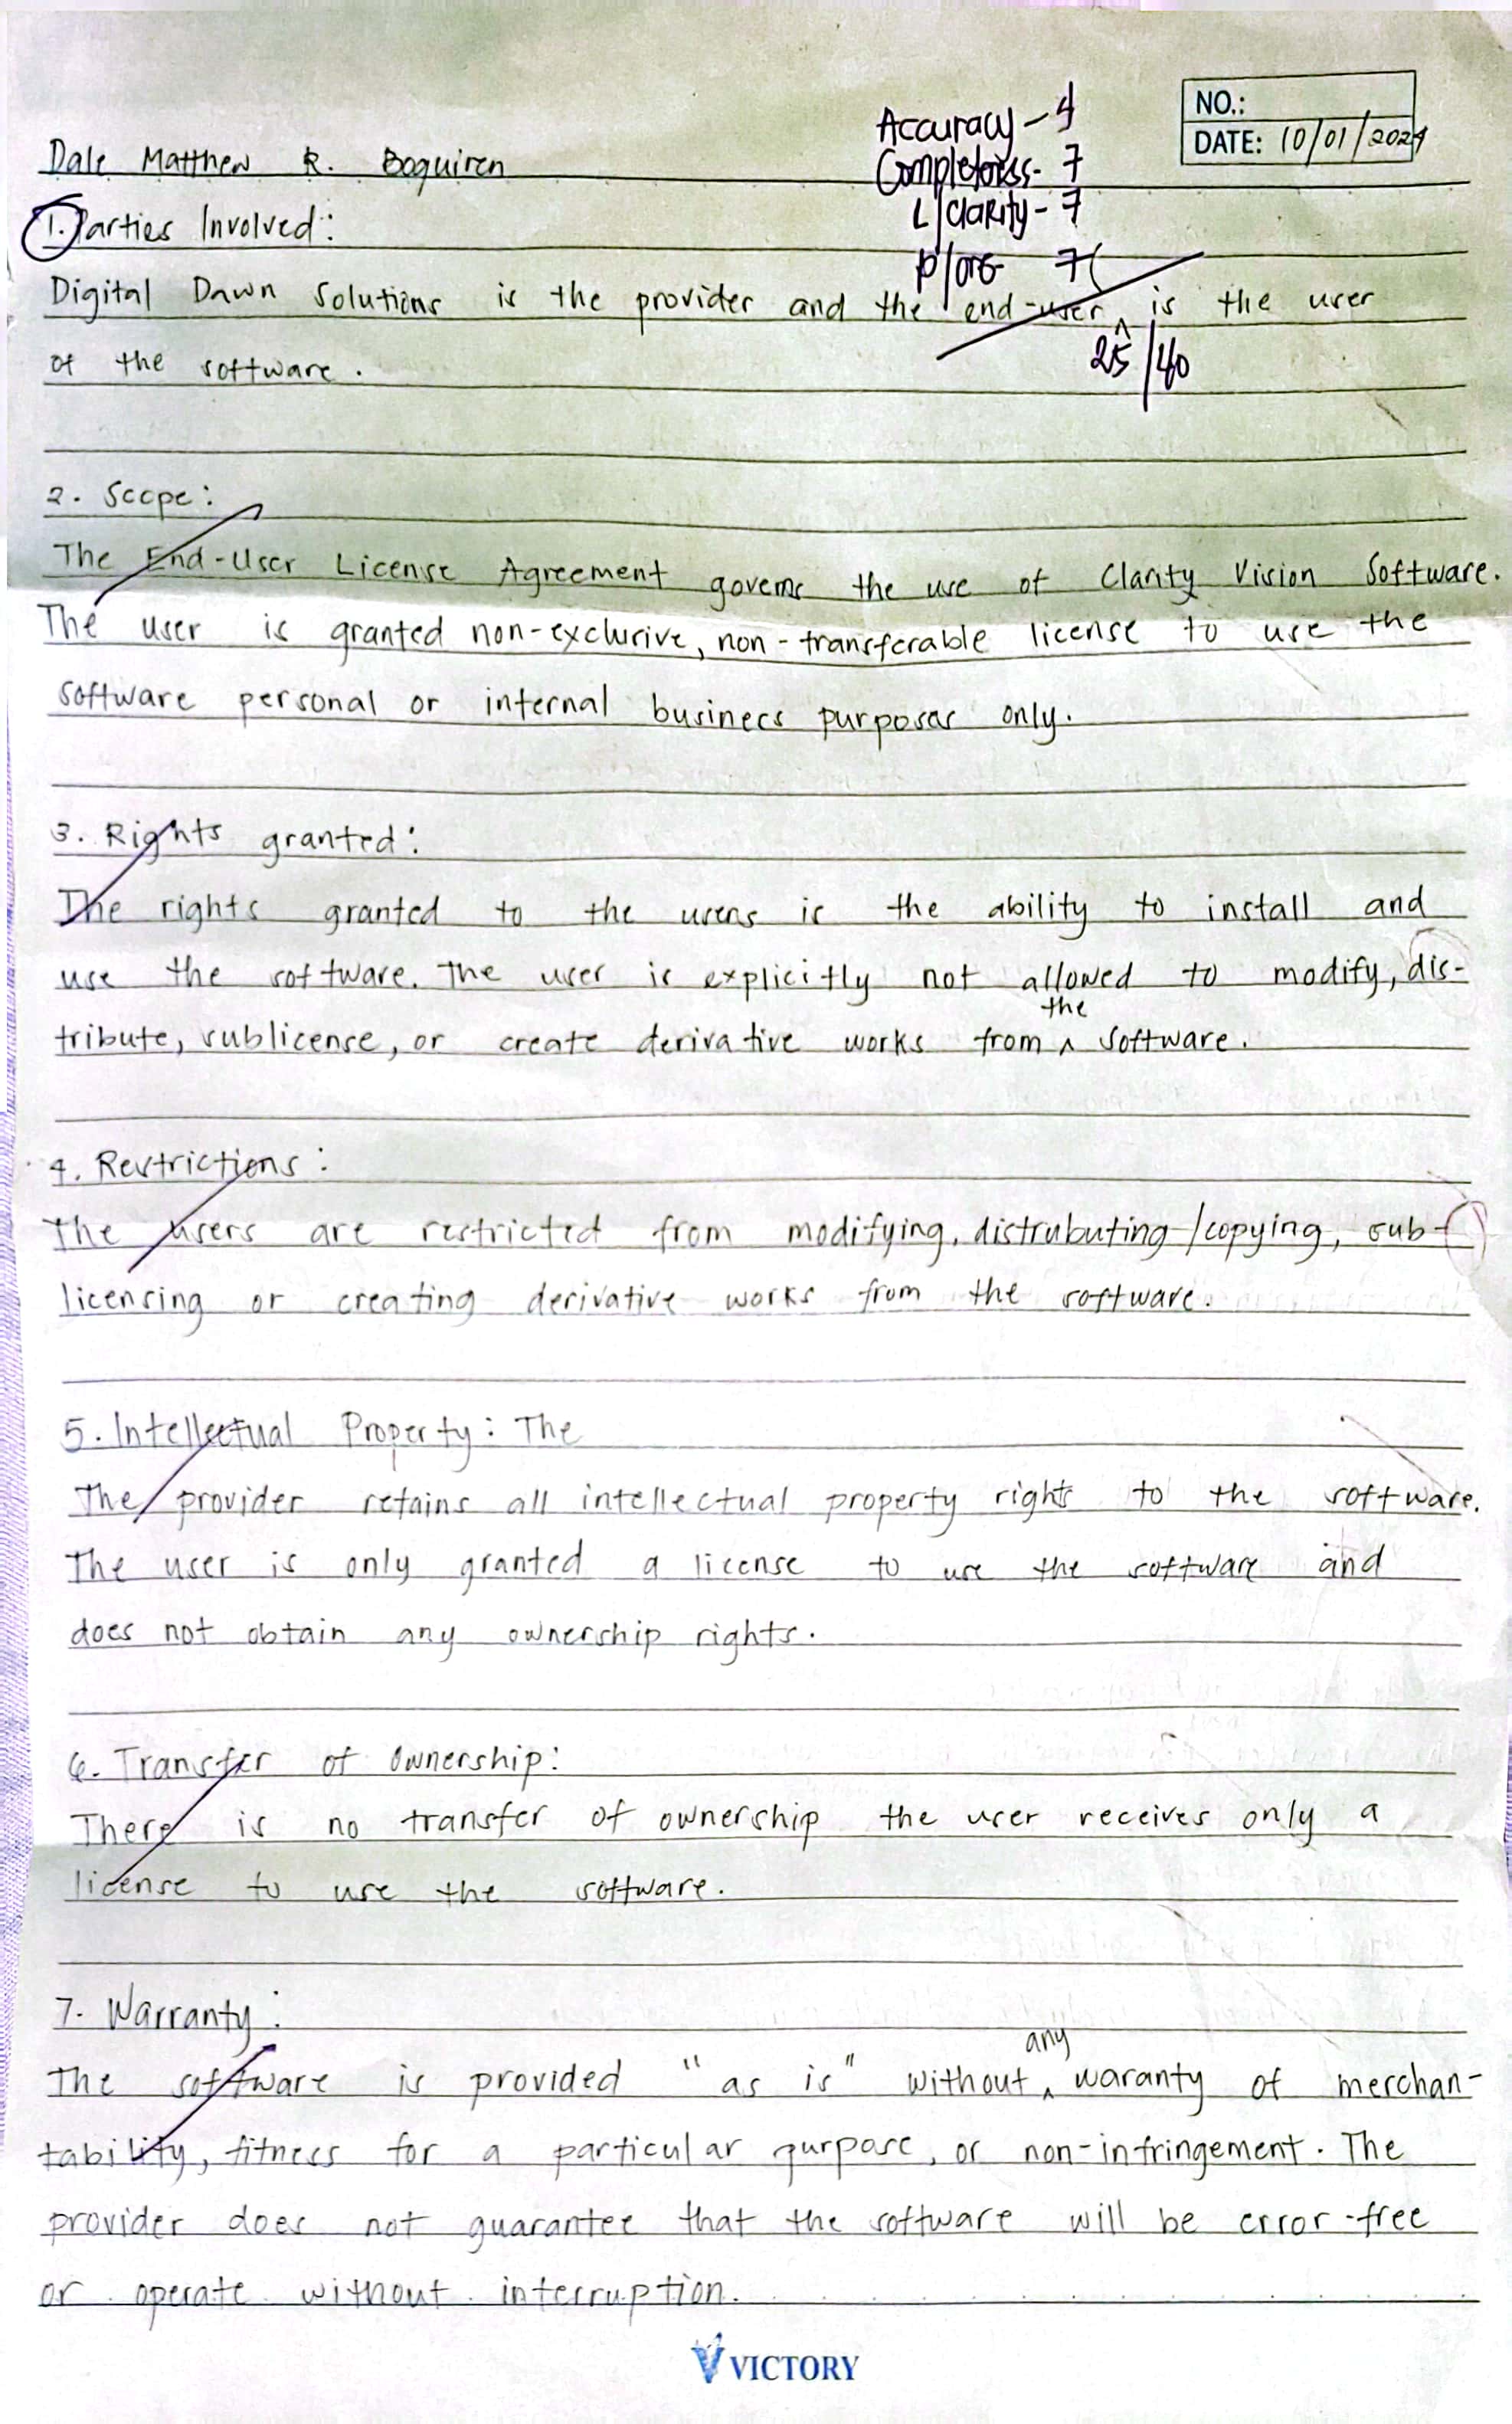 NO.:
DATE: 10/01/2024
Accuracy - 4
Completeness - 7
L/Clarity - 7
P/org 7
25/40
Dale Matthew R. Boquiren
1. Parties Involved:
Digital Dawn Solutions is the provider and the end-user is the user
of the software.
2. Scope:
The End-User License Agreement governs the use of Clarity Vision Software.
The user is granted non-exclusive, non-transferable license to use the
software personal or internal business purposes only.
3. Rights granted:
The rights granted to the users is the ability to install and
use the software. The user is explicitly not allowed to modify, dis-
tribute, sublicense, or create derivative works from the software.
4. Restrictions:
The users are restricted from modifying, distrubuting/copying, sub-
licensing or creating derivative works from the software.
5. Intellectual Property: The
The provider retains all intellectual property rights to the software.
The user is only granted a license to use the software and
does not obtain any ownership rights.
6. Transfer of Ownership:
There is no transfer of ownership the user receives only a
license to use the software.
7. Warranty:
The software is provided "as is" without any waranty of merchan-
tability, fitness for a particular purpose, or non-infringement. The
provider does not guarantee that the software will be error-free
or operate without interruption.
VICTORY